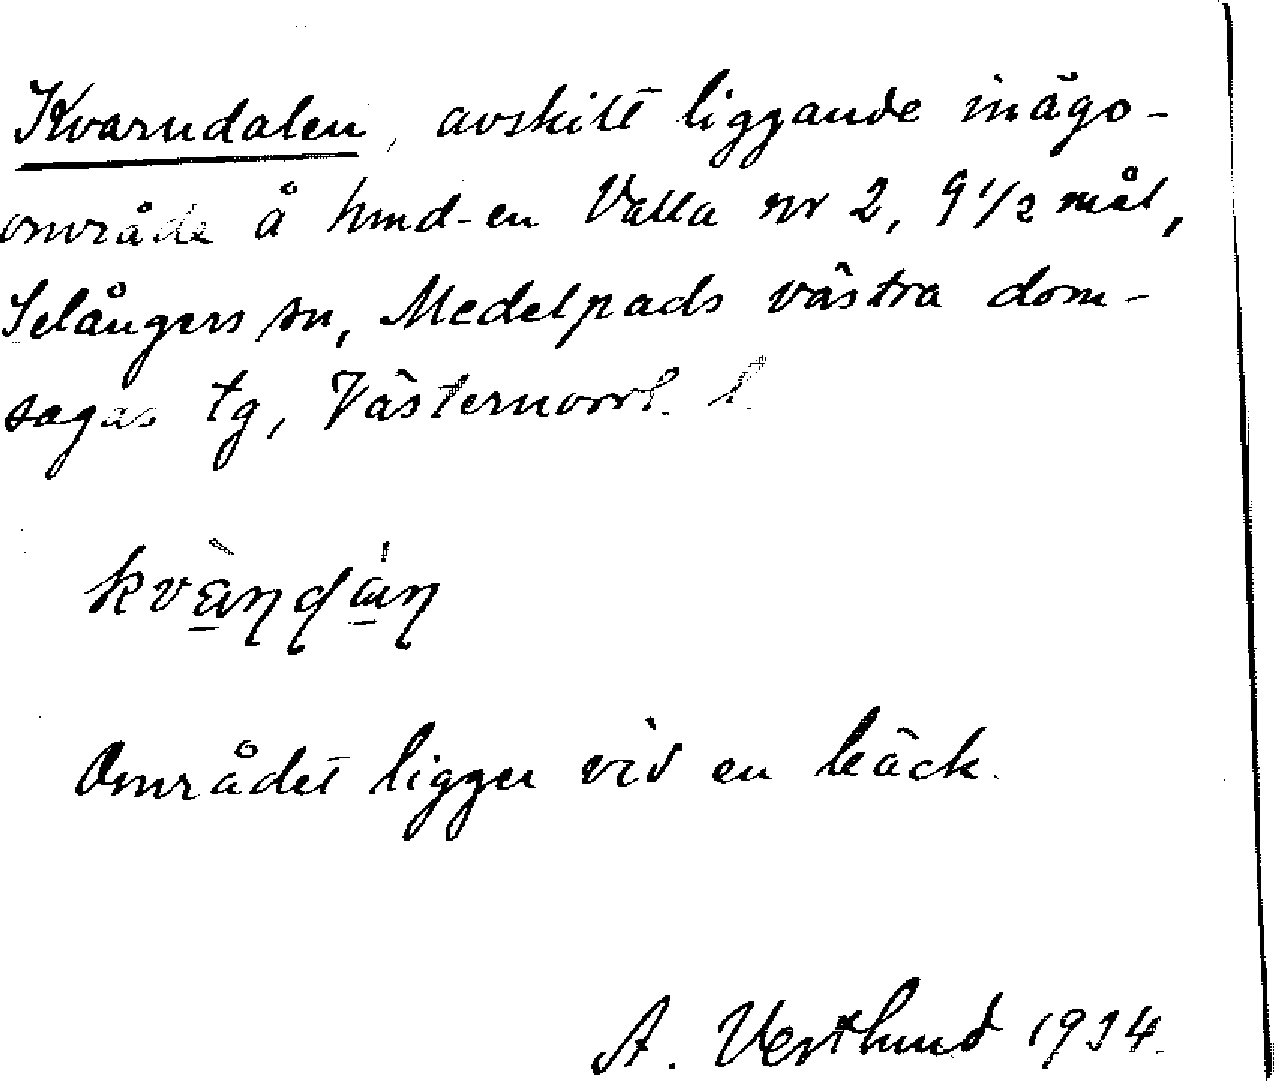 Kvarndalen, avskilt liggande inägo-
område å hmd-en Valla nr 2, 9 1/2 mål,
Selångers sn, Medelpads västra dom-
sagas tg, Västernorrl. l.
kvàṇḍáṇ
Området ligger vid en bäck.
A. Vestlund 1934.